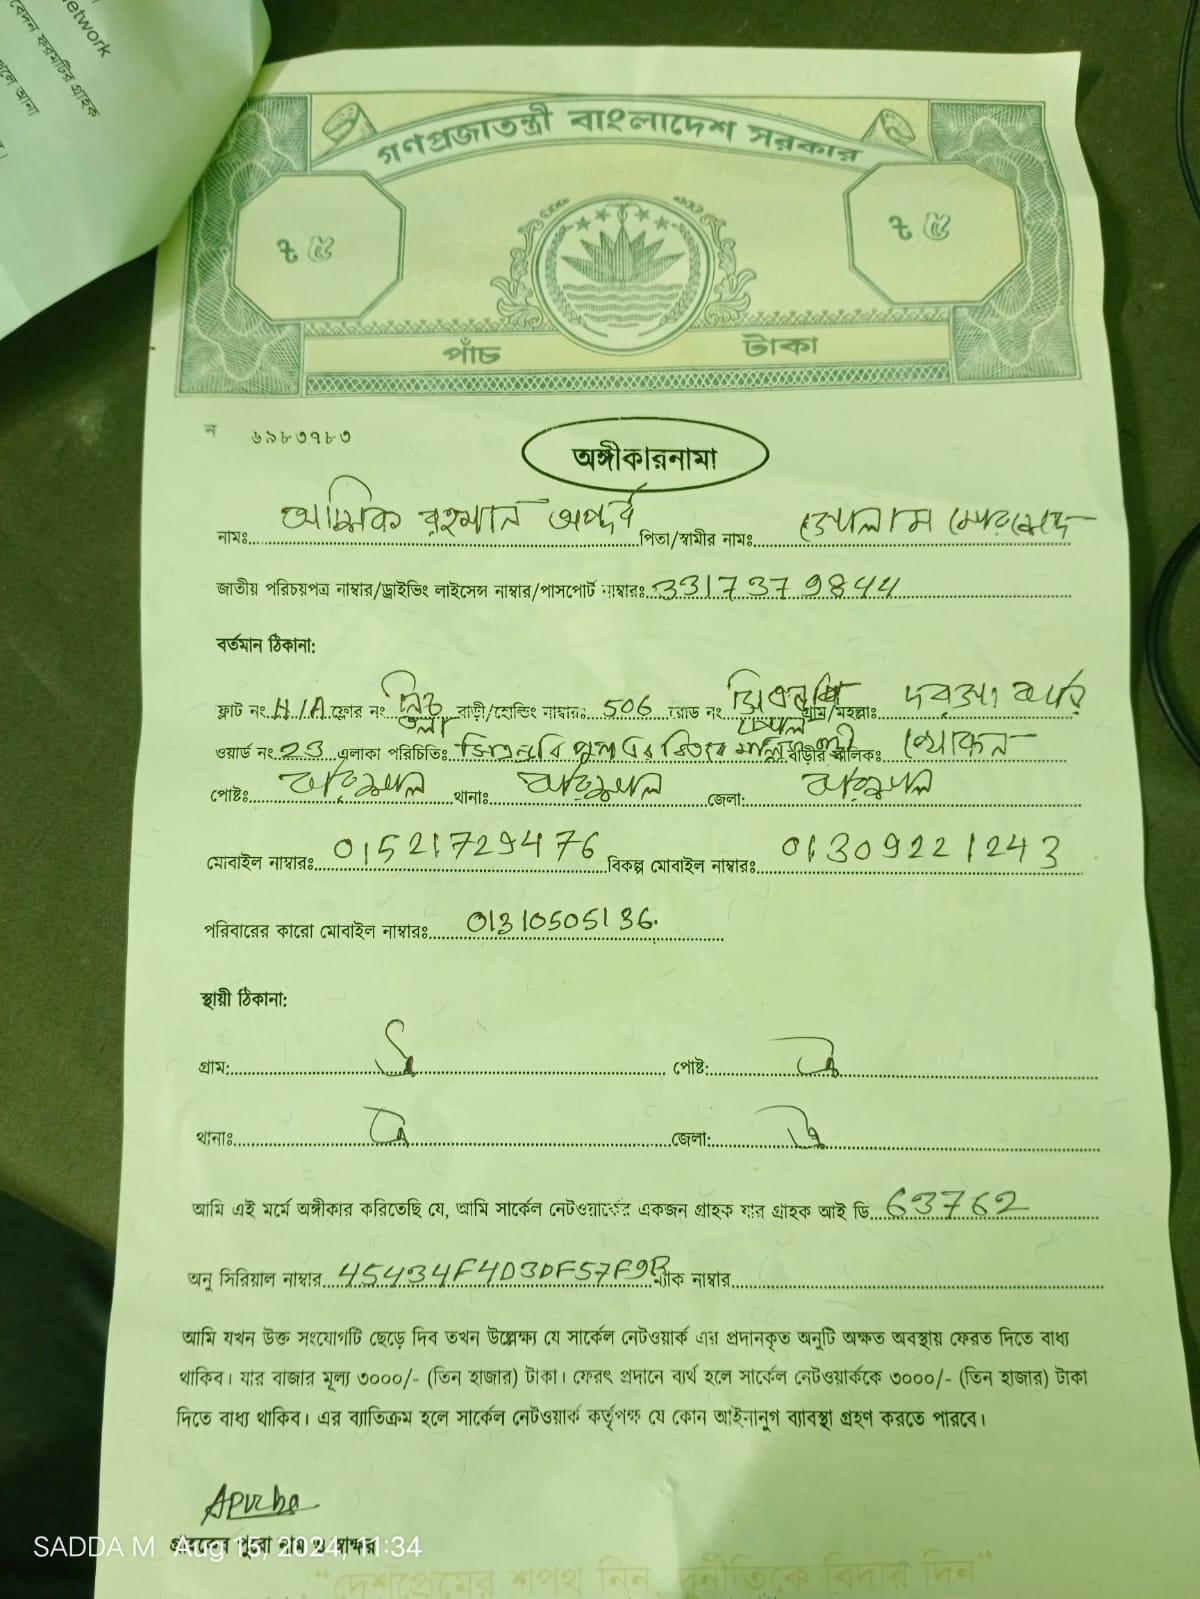 network
বেদন ফরমটির গ্রাহক
গণপ্রজাতন্ত্রী বাংলাদেশ সরকার
৳ ৫ ৳ ৫
পাঁচ টাকা
ন ৬৯৮৩৭৮৩
অঙ্গীকারনামা
নামঃ রহমান অপূর্ব পিতা/স্বামীর নামঃ
জাতীয় পরিচয়পত্র নাম্বার/ড্রাইভিং লাইসেন্স নাম্বার/পাসপোর্ট নাম্বারঃ 3317379844
বর্তমান ঠিকানা:
ফ্লাট নং N/A ফ্লোর নং নিচ তলা বাড়ী/হোল্ডিং নাম্বারঃ 506 রোড নং গ্রাম/মহল্লাঃ
ওয়ার্ড নং 23 এলাকা পরিচিতিঃ বাড়ীর মালিকঃ খোকন
পোষ্টঃ বরিশাল থানাঃ বরিশাল জেলা: বরিশাল
মোবাইল নাম্বারঃ 01521729476 বিকল্প মোবাইল নাম্বারঃ 01309221243
পরিবারের কারো মোবাইল নাম্বারঃ 01310505136.
স্থায়ী ঠিকানা:
গ্রাম: ঐ পোষ্ট: ঐ
থানাঃ ঐ জেলা: ঐ
আমি এই মর্মে অঙ্গীকার করিতেছি যে, আমি সার্কেল নেটওয়ার্কের একজন গ্রাহক যার গ্রাহক আই ডি 63762
অনু সিরিয়াল নাম্বার 45434F4D3DF57F9B ম্যাক নাম্বার
আমি যখন উক্ত সংযোগটি ছেড়ে দিব তখন উল্লেক্ষ্য যে সার্কেল নেটওয়ার্ক এর প্রদানকৃত অনুটি অক্ষত অবস্থায় ফেরত দিতে বাধ্য
থাকিব। যার বাজার মূল্য ৩০০০/- (তিন হাজার) টাকা। ফেরৎ প্রদানে ব্যর্থ হলে সার্কেল নেটওয়ার্ককে ৩০০০/- (তিন হাজার) টাকা
দিতে বাধ্য থাকিব। এর ব্যাতিক্রম হলে সার্কেল নেটওয়ার্ক কর্তৃপক্ষ যে কোন আইনানুগ ব্যাবস্থা গ্রহণ করতে পারবে।
Apurba
গ্রাহকের পুরো নাম ও স্বাক্ষর
SADDA M Aug 15, 2024, 11:34
"দেশপ্রেমের শপথ নিন, দুর্নীতিকে বিদায় দিন"